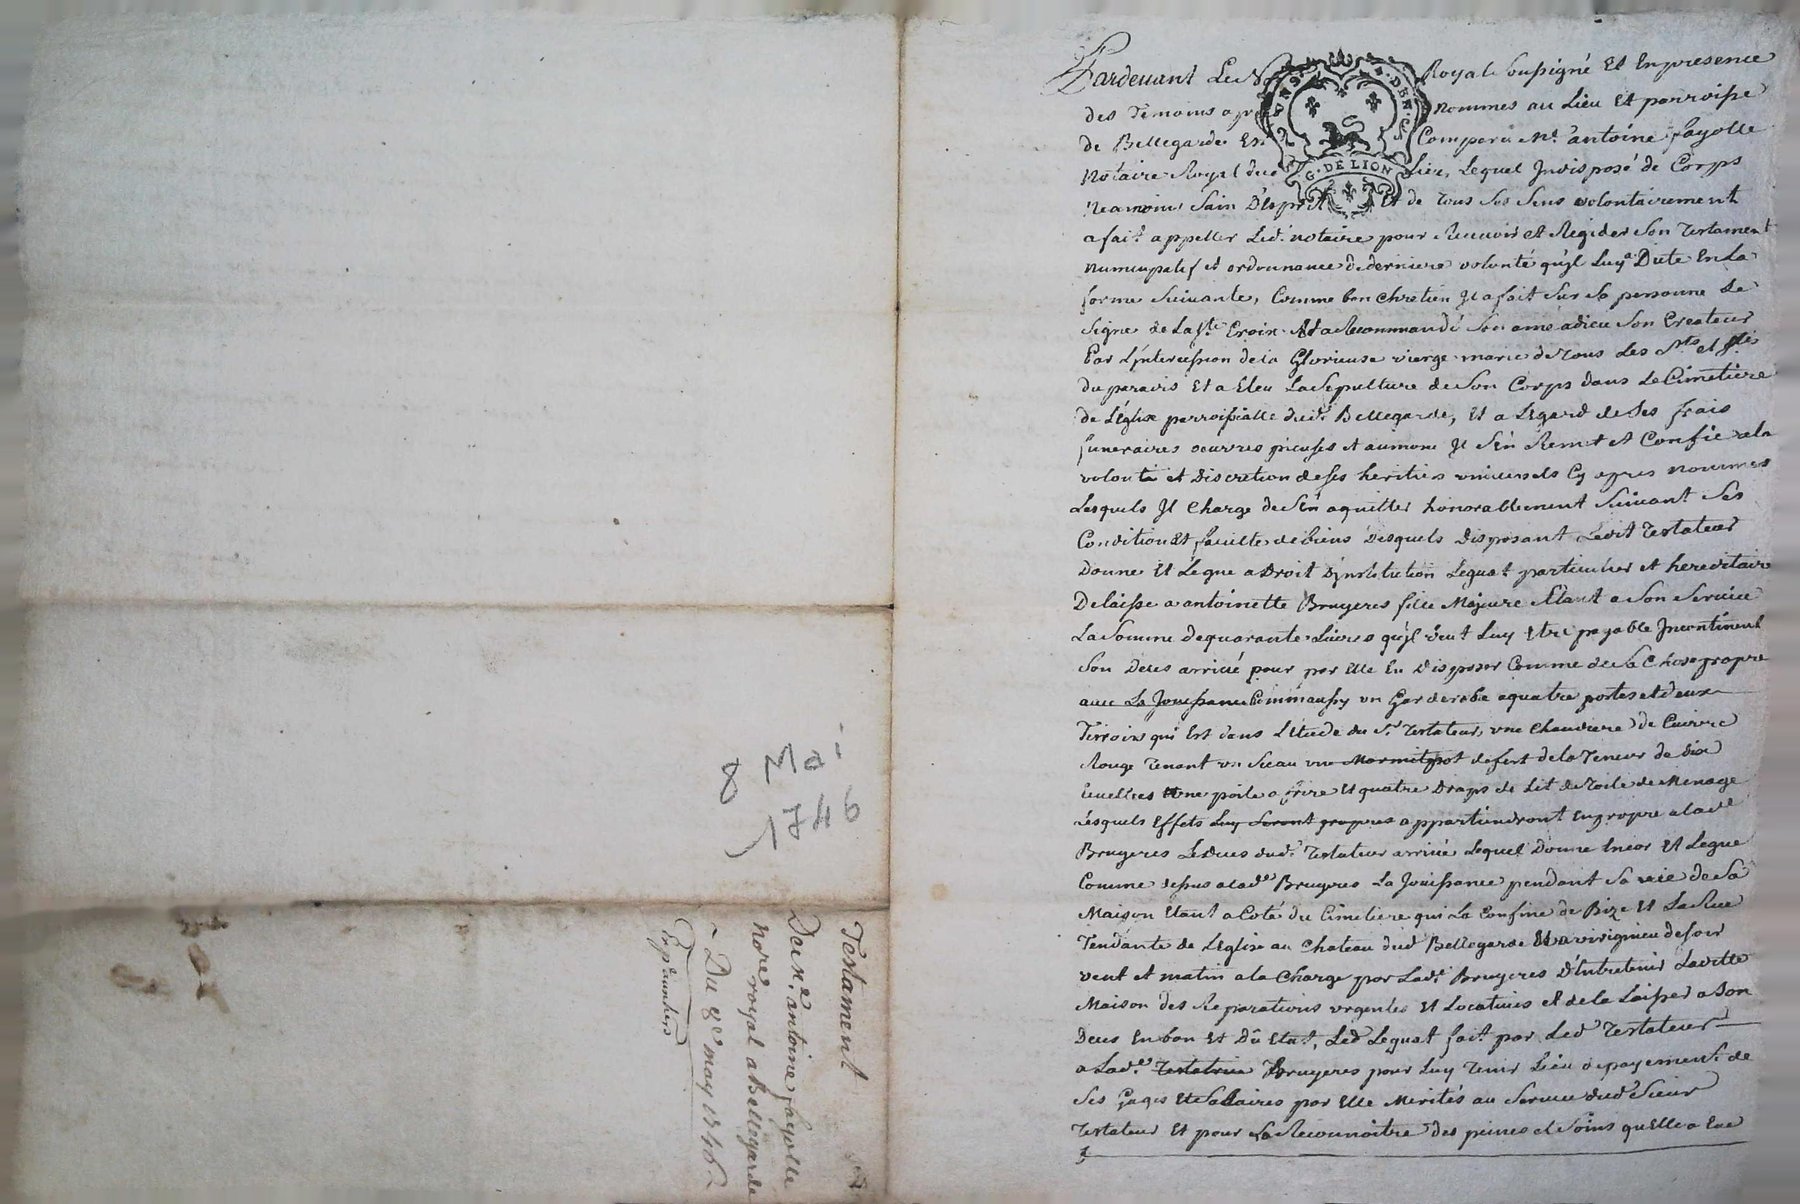 8 Mai
1746
Testament
De m.e antoine fayolle
nore royal a Bellegarde
Du 8e may 1746
Expedié
Pardevant Le No Royal Soussigné Et En presence
des Temoins apr nommes au Lieu Et parroisse
de Bellegarde Est Comparu Me. antoine fayolle
Notaire Royal dud Lieu, Lequel Indisposé de Corps
Neamoins Sain D'Esprit Et de Tous Ses Sens volontairement
a fait appeller Led. notaire pour Recevoir et Rediger Son Testament
Nuncupatif et ordonnance de derniere volonté qu'il Luy a Dicté En La
forme Suivante, Comme bon Chretien Il a fait Sur Sa personne Le
Signe de La Ste Croix Et a Recommandé Son ame a dieu Son Createur
Par L'intercession de la Glorieuse vierge marie de Tous Les Sts et Stes
du paravis Et a Eleu La Sepulture de Son Corps dans Le Cimetiere
de L'Eglise parroissialle dud. Bellegarde, Et a L'Egard de Ses frais
funeraires oeuvres pieuses et aumone Il S'en Remet et Confie a la
volonté et Discretion de ses heritiers universels Cy apres nommes
Lesquels Il Charge de S'En aquitter honorablement Suivant Ses
Condition Et faculté de biens Desquels Disposant Ledit Testateur
Donne Et Legue a Droit D'Institution Leguat particulier et hereditaire
Delaisse a antoinette Bruyeres fille Majeure Etant a Son Service
La Somme de quarante Livres qu'il veut Luy Etre payable Incontinent
Son Deces arrivé pour par Elle En Disposer Comme de Sa Chose propre
avec La Jouissance Comm'aussy un Garderobe a quatre portes et deux
Tirroirs qui Est dans L'Etude du Sr Testateur, une Chaudiere de Cuivre
Rouge Tenant un Seau une Marmite pot de fert de la Teneur de dix
Ecuelles Une poile a frire Et quatre Draps de Lit de Toile de Menage
Lesquels Effets Luy Seront propres appartiendront En propre a lade
Bruyeres Le deces dud. Testateur arrivé Lequel Donne Encor Et Legue
Comme dessus a lade Bruyeres La Jouissance pendant Sa vie de Sa
Maison Etant a Coté du Cimetiere qui La Confine de Bize Et La Rue
Tendante de L'Eglise au Chateau dud Bellegarde Et a virigneu de soir
vent et matin a la Charge par Lade Bruyeres D'Entretenir Laditte
Maison des Reparations urgentes Et Locatives et de la Laisser a Son
Deces En bon Et Dû Etat, Led Leguat fait par Led Testateur
a Lade. Testatrice Bruyeres pour Luy Tenir Lieu de payement de
Ses Gages Et Salaires par Elle Merités au Service dud Sieur
Testateur Et pour La Reconnoitre des peines et Soins qu'Elle a Eue
G. DE LION